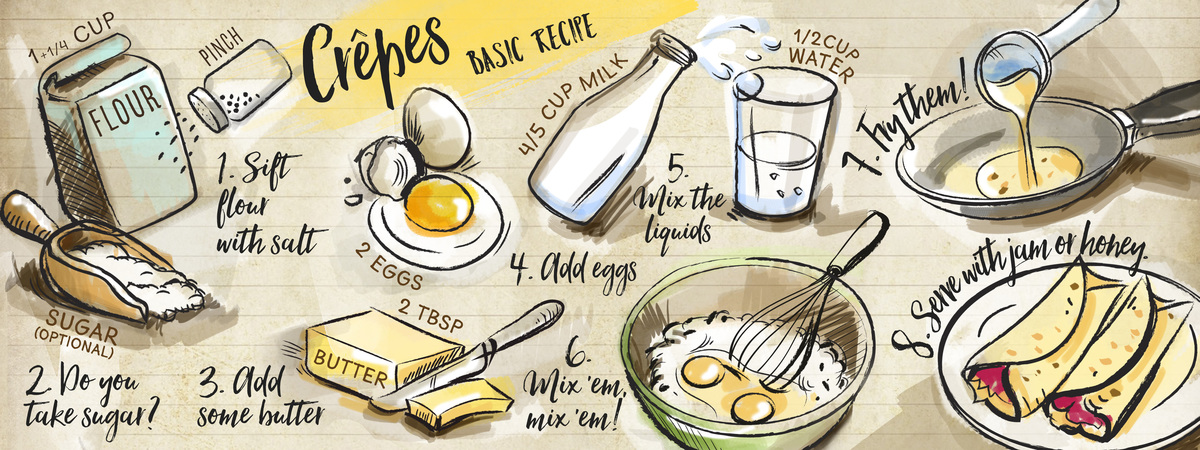 Crêpes
BASIC RECIPE
1+1/4 CUP
FLOUR
PINCH
1. Sift
flour
with salt
SUGAR
(OPTIONAL)
2. Do you
take sugar?
2 TBSP
BUTTER
3. Add
some butter
2 EGGS
4. Add eggs
4/5 CUP MILK
1/2 CUP
WATER
5.
Mix the
liquids
6.
Mix 'em,
mix 'em!
7. Fry them!
8. Serve with jam or honey.